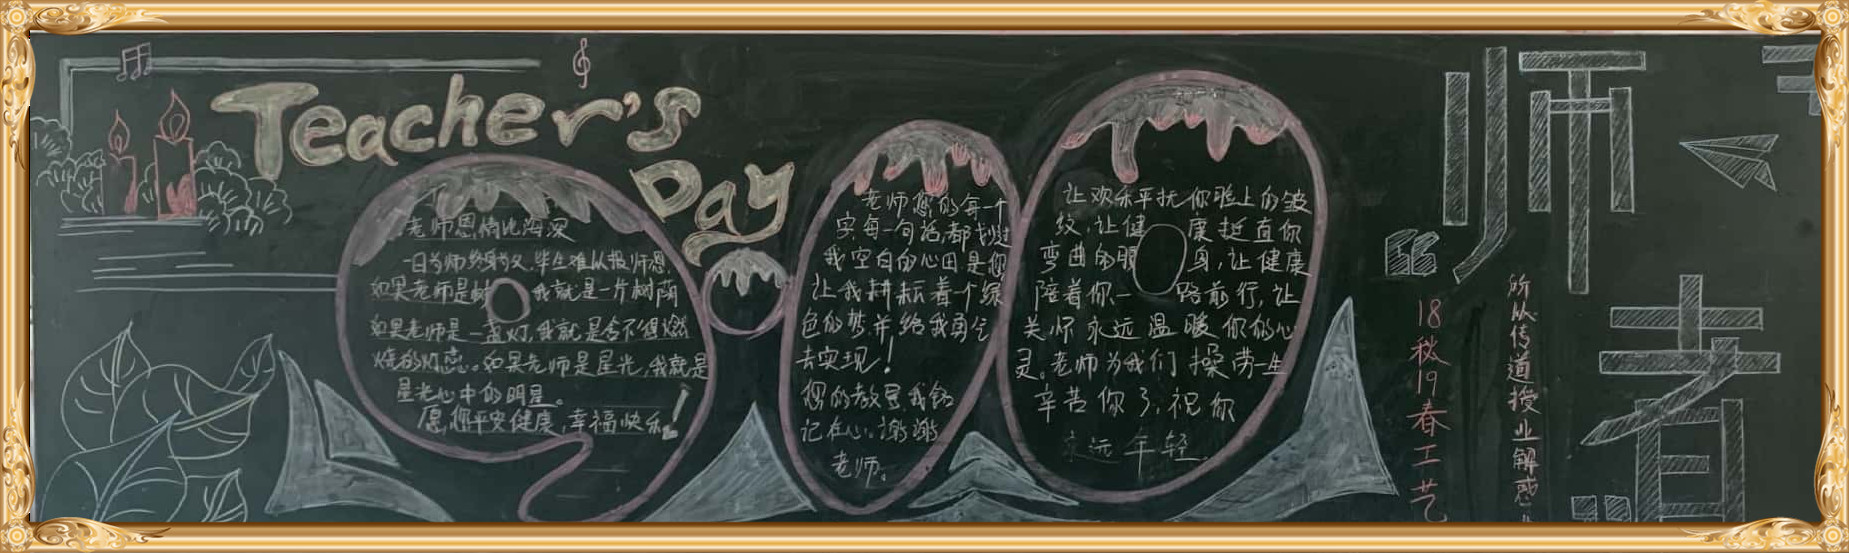 Teacher's
Day
老师恩情比海深
一日为师终身为父,毕生难以报师恩,
如果老师是树 我就是一片树荫
如果老师是一盏灯,我就是舍不得燃
烧的灯恋。如果老师是星光,我就是
星光心中的明星。
愿您平安健康,幸福快乐!
老师您的每一个
字每一句话,都划过
我空白的心田是您
让我耕耘着一个绿
色的梦并给我勇气
去实现!
您的教 我铭
记在心。谢谢
老师。
让欢乐平抚你脸上的皱
纹,让健康挺直你
弯曲的腰身,让健康
陪着你一路前行,让
关怀永远温暖你的心
灵。老师为我们操劳一生
辛苦你了,祝你
永远年轻。
18秋19春工艺
师者
所以传道授业解惑